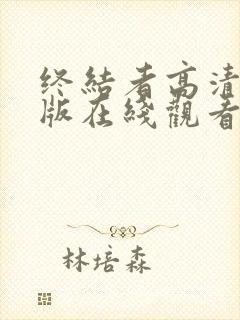 终结者高清
版在线观看
林培森